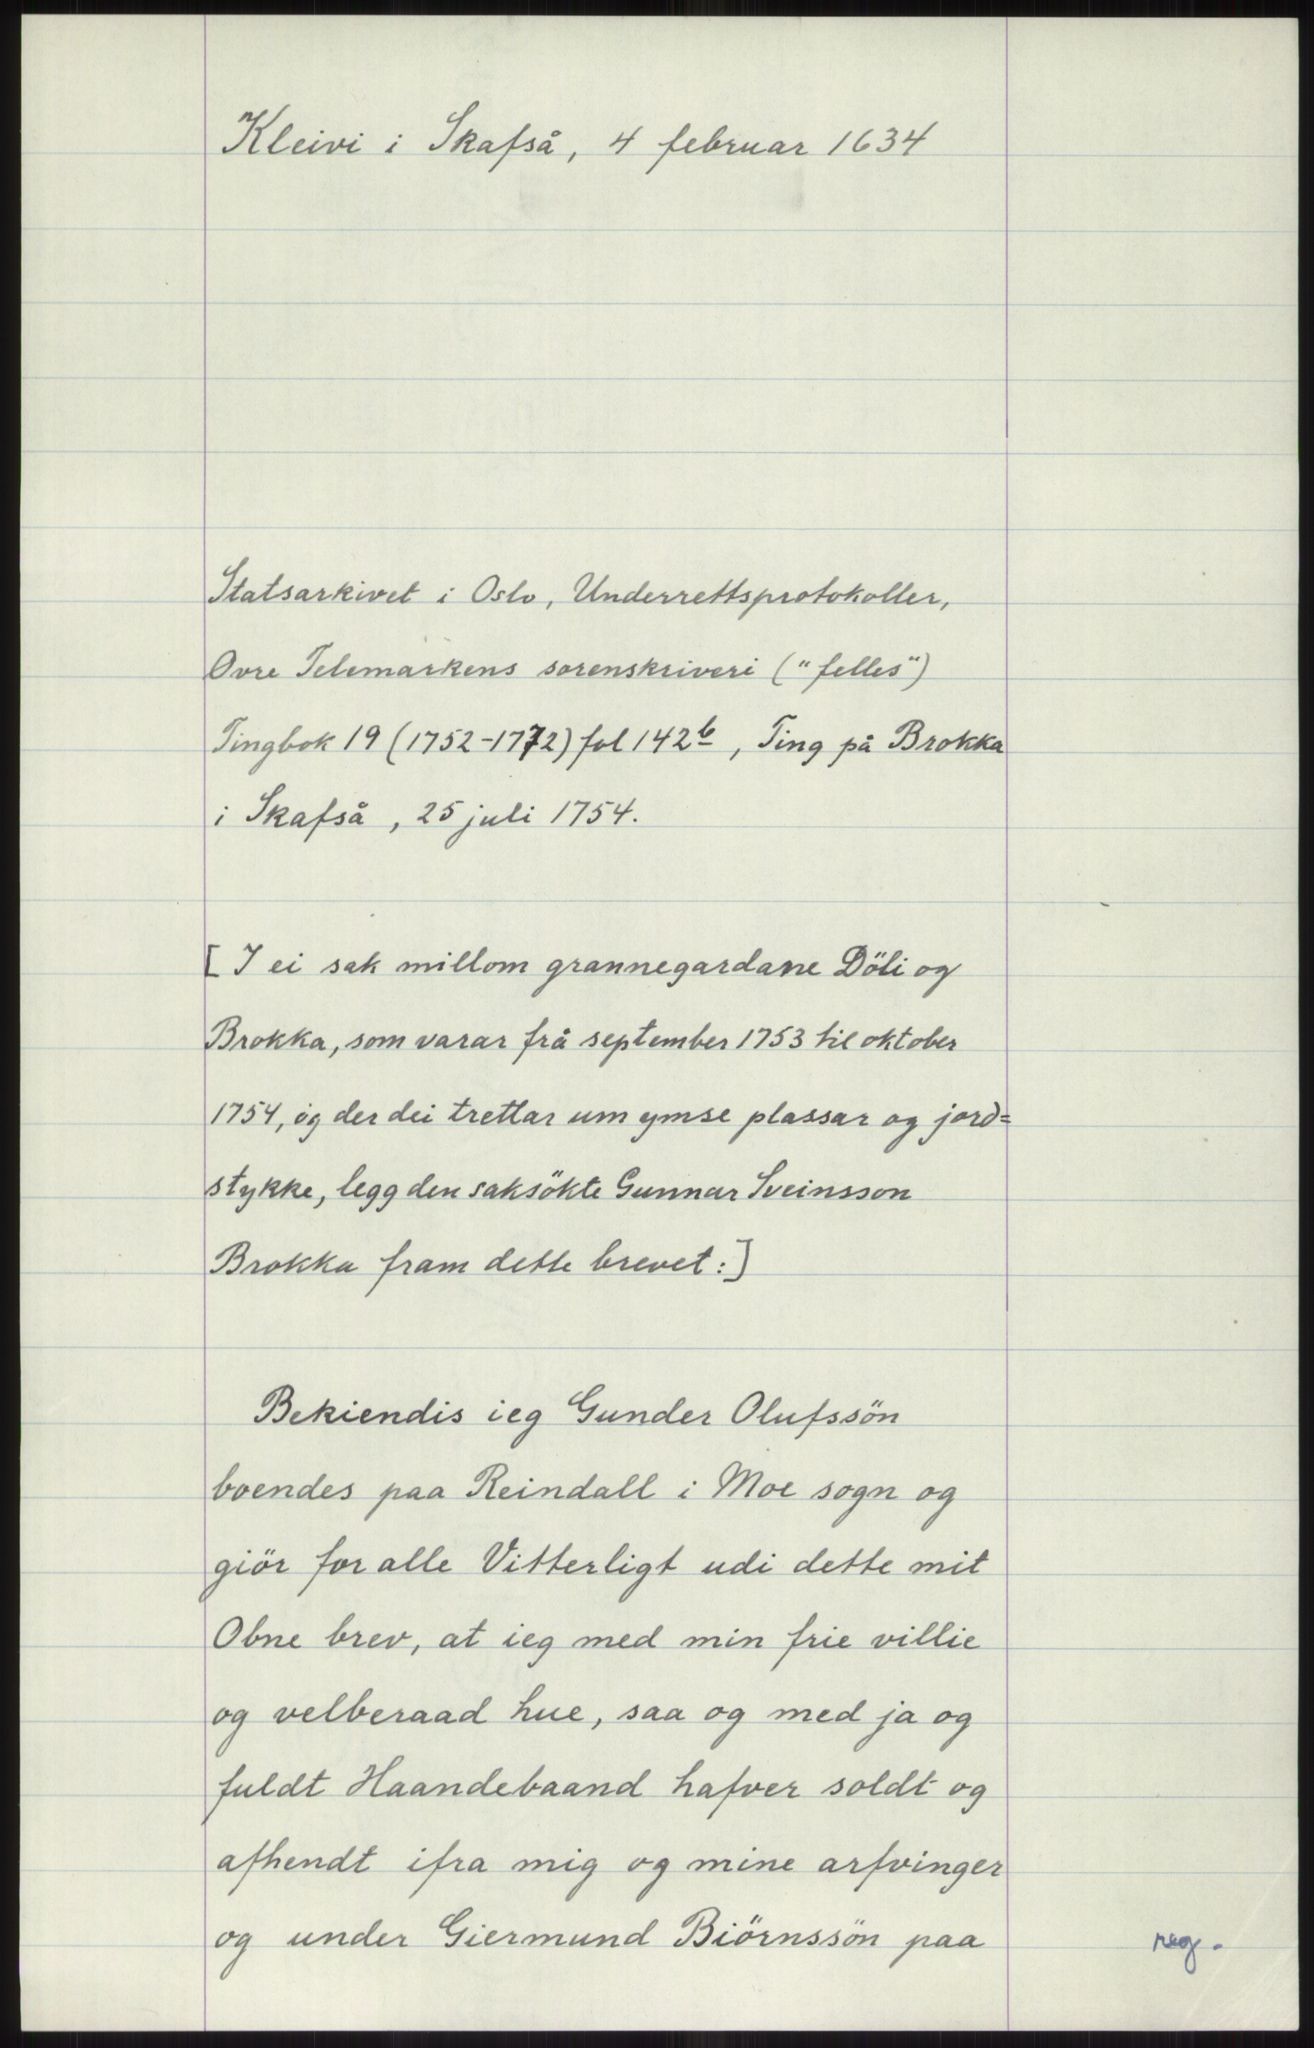 Kleivi i Skafså, 4 februar 1634
Statsarkivet i Oslo, Underrettsprotokoller,
Ovre Telemarkens sorenskriveri ("felles")
Tingbok 19 (1752-1772) fol 142b, Ting på Brokka
i Skafså, 25 juli 1754.
[I ei sak millom grannegardane Döli og
Brokka, som varar frå september 1753 til oktober
1754, og der dei trettar um ymse plassar og jord=
stykke, legg den saksökte Gunnar Sveinsson
Brokka fram dette brevet:]
Bekiendis ieg Gunder Olufssön
boendes paa Reindall i Moe sogn og
giör for alle Vitterligt udi dette mit
Obne brev, at ieg med min frie villie
og velberaad hue, saa og med ja og
fuldt Haandebaand hafver soldt og
afhendt ifra mig og mine arfvinger
og under Giermund Biörnssön paa
reg.